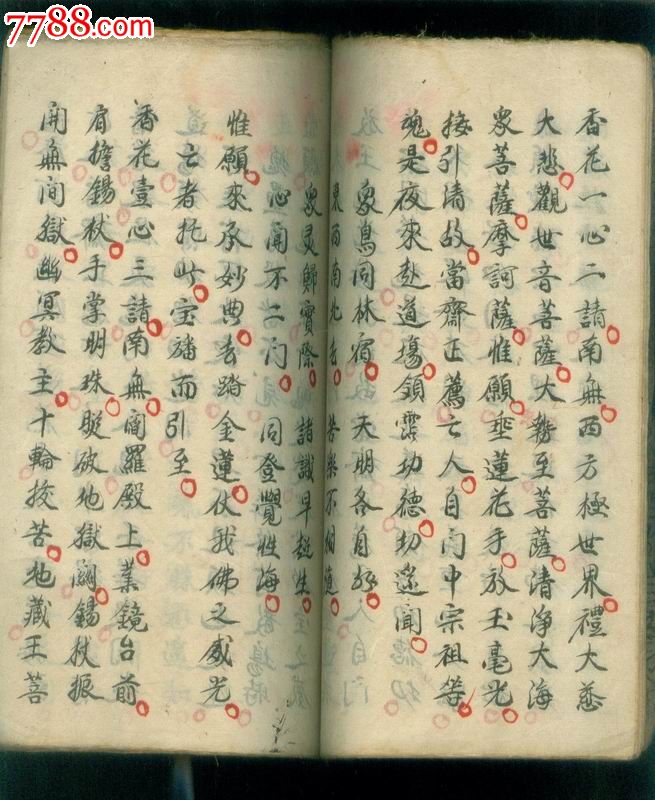 7788.com
香花一心二請南無西方極世界禮大慈
大悲觀世音菩薩大勢至菩薩清淨大海
衆菩薩摩訶薩惟願垂蓮花手放玉毫光
接引清故當齋正薦亡人自門中宗祖等
魂是夜來赴道場領霑功德切遙聞
衆鳥同林宿 天明各自
東西南北去 苦樂不相
衆灵歸實際 諸識早超生
心開不二門 同登覺性海
惟願來承妙典去踏金蓮仗我佛之威光
亡者托此宝旛而引至
香花壹心三請南無閻羅殿上業鏡台前
肩擔錫杖手掌明珠 破地獄 錫杖振
開無间獄幽冥教主十輪拔苦地藏王菩